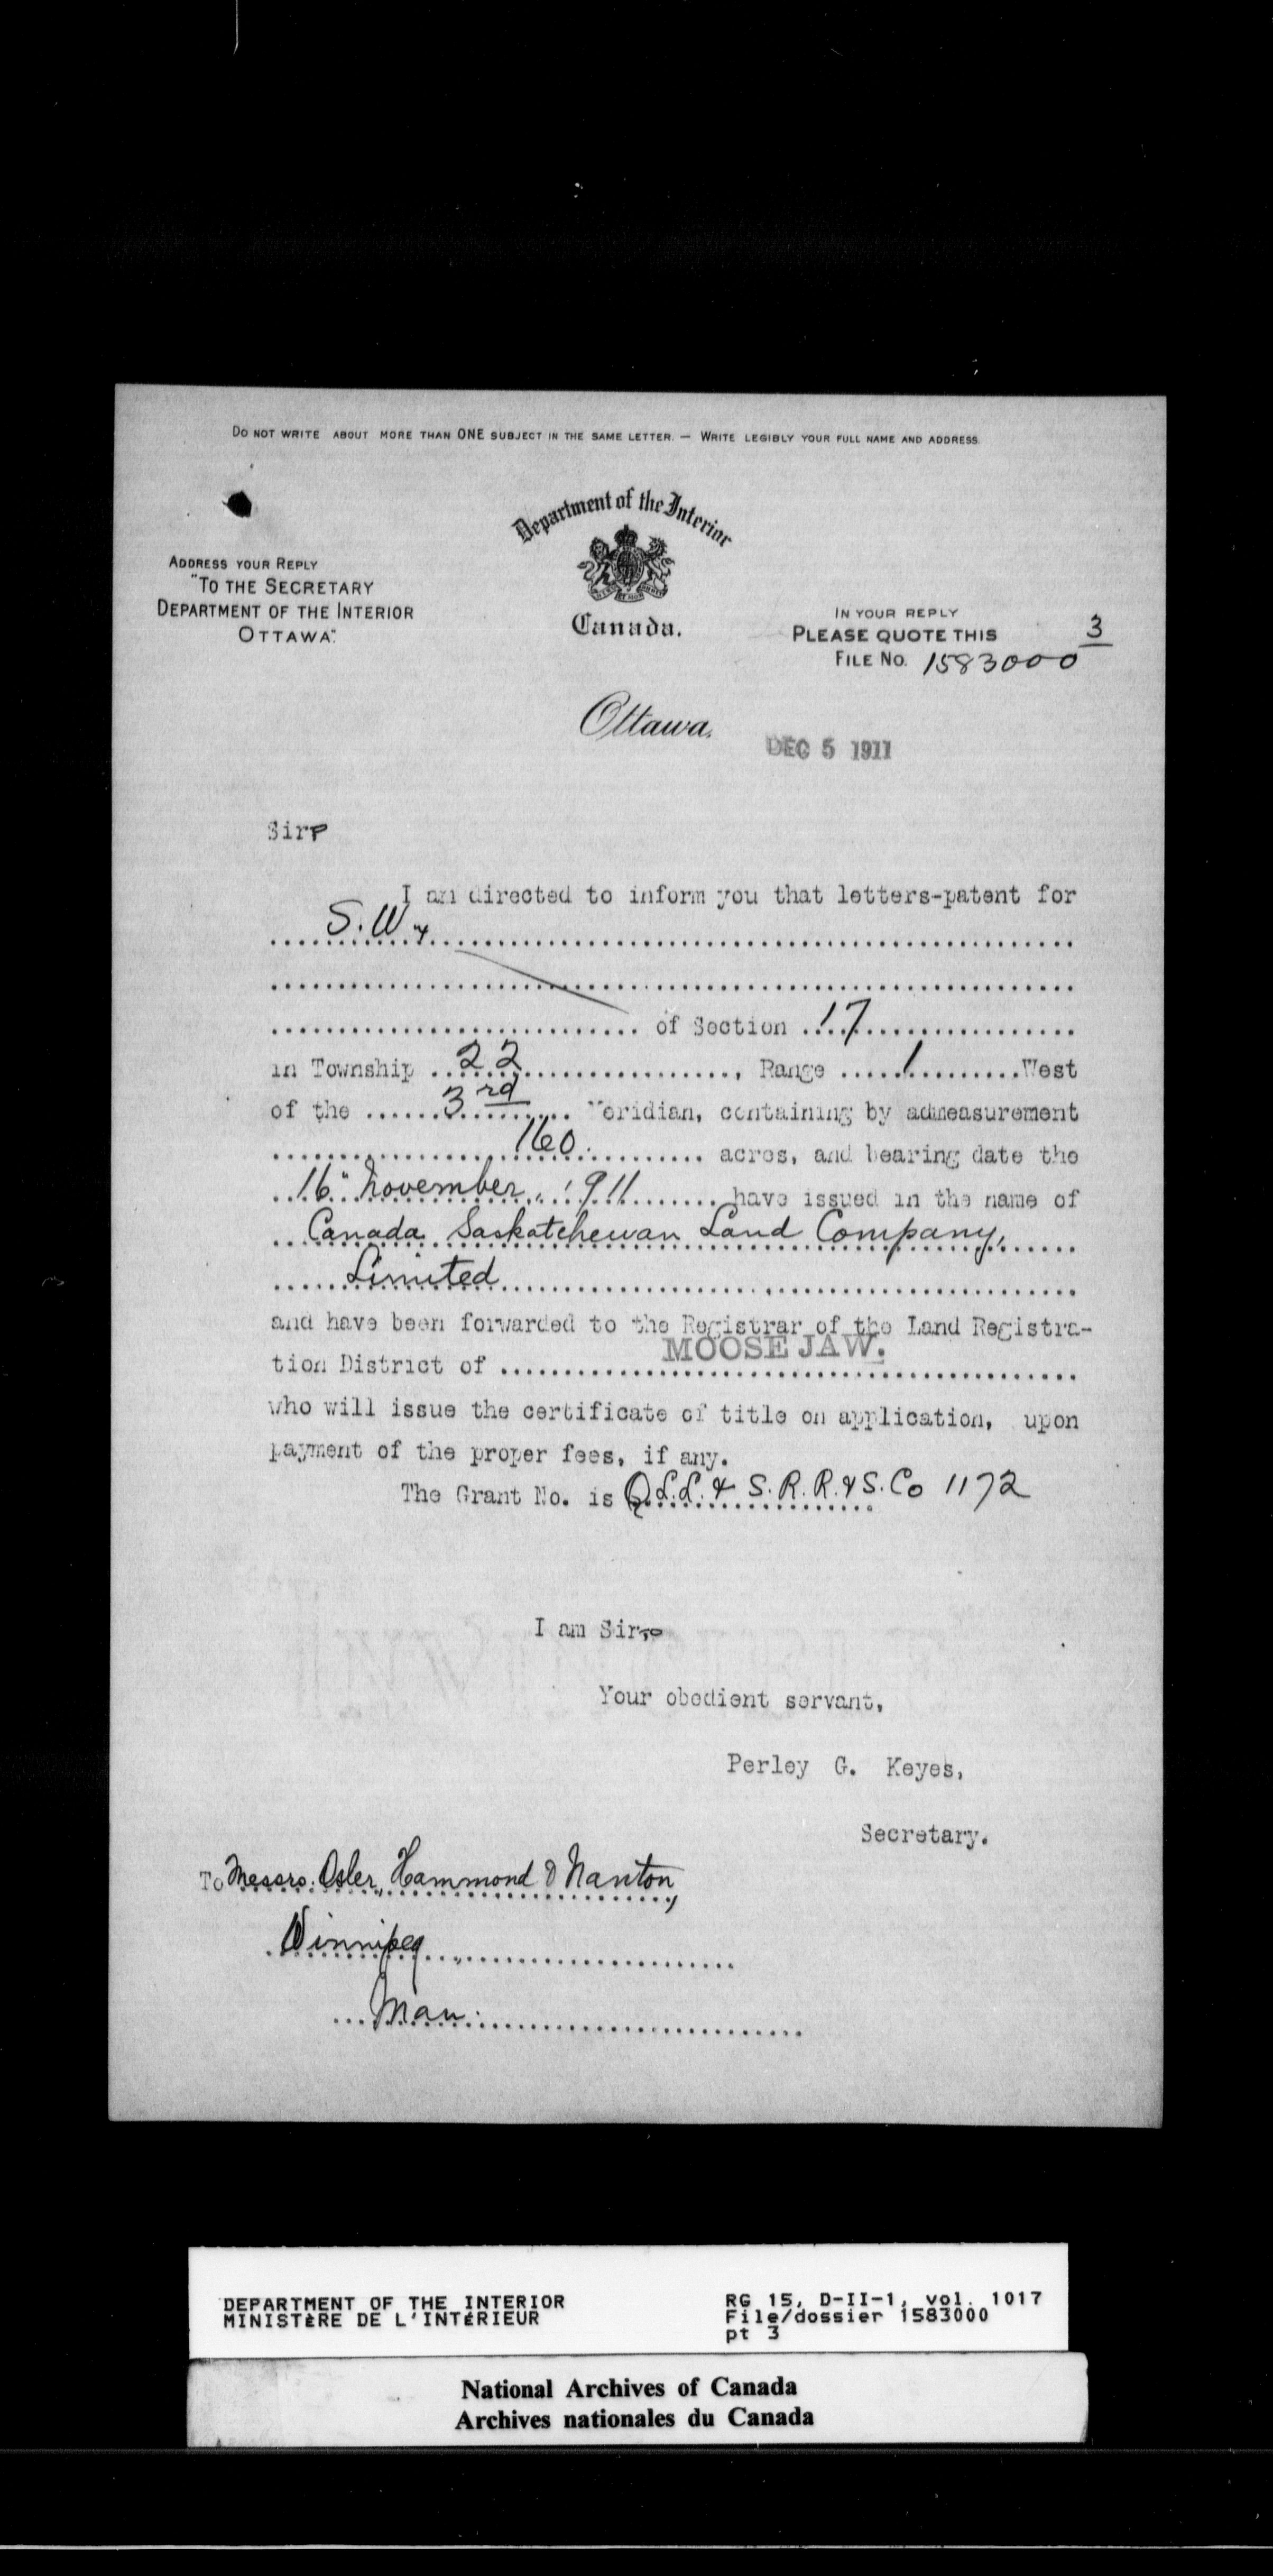 DO NOT WRITE ABOUT MORE THAN ONE SUBJECT IN THE SAME LETTER. — WRITE LEGIBLY YOUR FULL NAME AND ADDRESS.
Department of the Interior
Canada.
ADDRESS YOUR REPLY
"TO THE SECRETARY
DEPARTMENT OF THE INTERIOR
OTTAWA".
IN YOUR REPLY
PLEASE QUOTE THIS
FILE NO. 1583000 3
Ottawa,
DEC 5 1911
Sir,
I am directed to inform you that letters-patent for
S.W ¼
of Section 17
in Township 22, Range 1 West
of the 3rd Meridian, containing by admeasurement
160 acres, and bearing date the
16" November, 1911 have issued in the name of
Canada Saskatchewan Land Company,
Limited
and have been forwarded to the Registrar of the Land Registra-
tion District of MOOSE JAW.
who will issue the certificate of title on application, upon
payment of the proper fees, if any.
The Grant No. is Q.L.L. & S.R.R. & S.Co 1172
I am Sir,
Your obedient servant,
Perley G. Keyes,
Secretary.
To Messrs. Osler, Hammond & Nanton,
Winnipeg
Man.
DEPARTMENT OF THE INTERIOR
MINISTÈRE DE L'INTÉRIEUR
RG 15, D-II-1, vol. 1017
File/dossier 1583000
pt 3
National Archives of Canada
Archives nationales du Canada